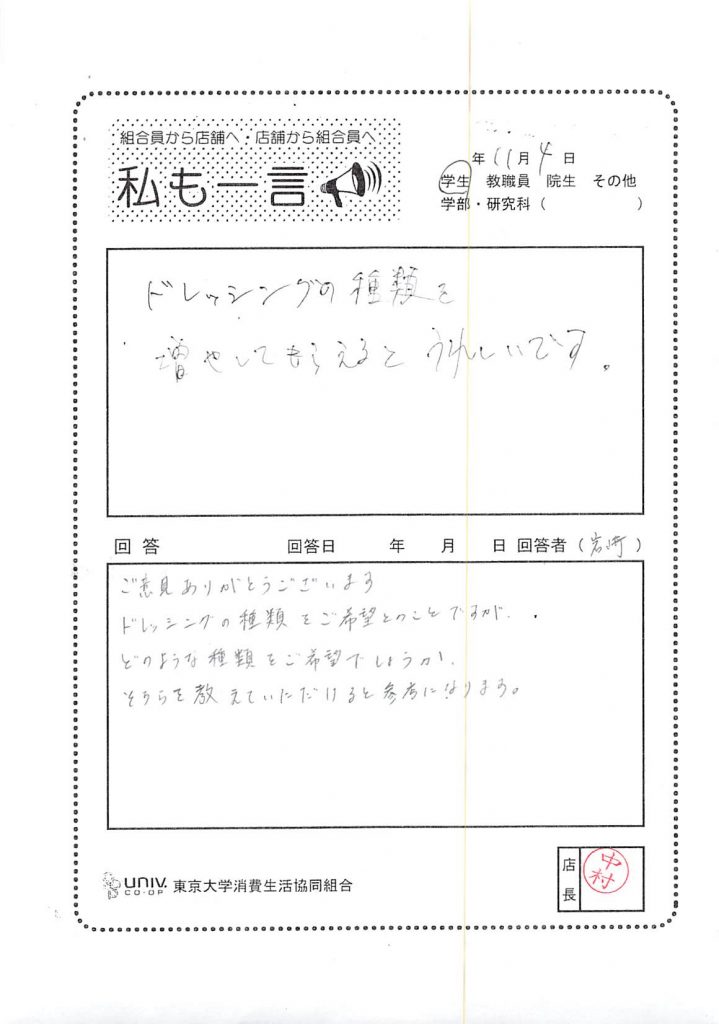 組合員から店舗へ・店舗から組合員へ
私も一言
年 11月 4日
学生 教職員 院生 その他
学部・研究科（ ）
ドレッシングの種類を
増やしてもらえるとうれしいです。
回答 回答日 年 月 日 回答者（岩崎）
ご意見ありがとうございます
ドレッシングの種類をご希望とのことですが、
どのような種類をご希望でしょうか、
そちらを教えていただけると参考になります。
UNIV. CO-OP 東京大学消費生活協同組合
店長 中村